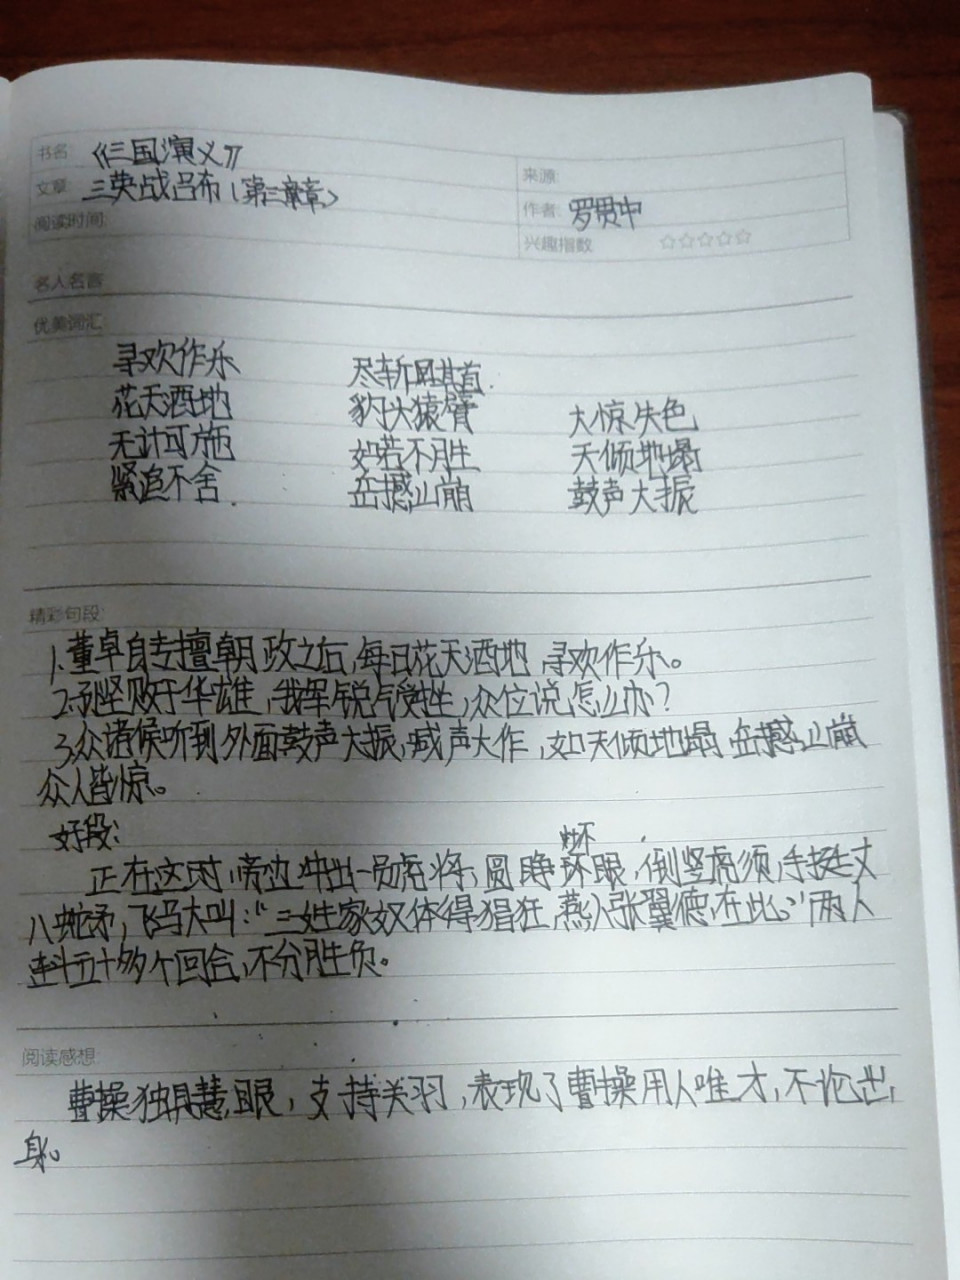 书名: 《三国演义》
来源
文章: 三英战吕布(第三章章)
作者: 罗贯中
阅读时间:
兴趣指数 ☆☆☆☆☆
名人名言
优美词汇
寻欢作乐 尽斩其首.
花天酒地 豹头猿臂 大惊失色
无计可施 如若不胜 天倾地塌
紧追不舍. 岳撼山崩 鼓声大振
精彩句段:
1.董卓自专擅朝政之后,每日花天酒地,寻欢作乐。
2.孙坚败于华雄,我军锐气受挫,众位说怎么办?
3.众诸候听到外面鼓声大振,喊声大作,如天倾地塌,岳撼山崩
众人皆惊。
好段:
正在这时,旁边冲出一员虎将,圆睁环眼,倒竖虎须,手挺丈
八蛇矛,飞马大叫:“三姓家奴休得猖狂,燕人张翼德在此”两人
连斗五十多个回合,不分胜负。
阅读感想:
曹操独具慧眼,支持关羽,表现了曹操用人唯才,不论出
身。